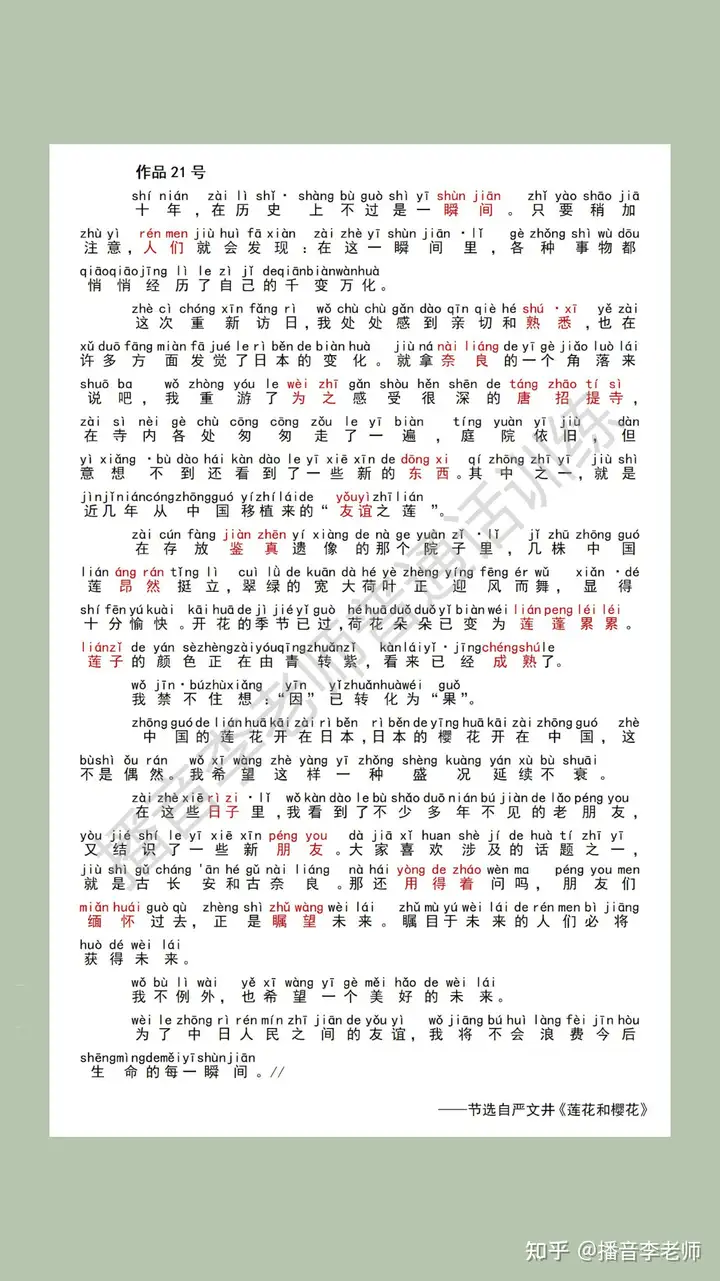 作品 21 号
shí nián zài lì shǐ · shàng bù guò shì yī shùn jiān zhǐ yào shāo jiā
十年，在历史上不过是一瞬间。只要稍加
zhù yì rén men jiù huì fā xiàn zài zhè yī shùn jiān · lǐ gè zhǒng shì wù dōu
注意，人们就会发现：在这一瞬间里，各种事物都
qiāoqiāojīng lì le zì jǐ deqiānbiànwànhuà
悄悄经历了自己的千变万化。
zhè cì chóng xīn fǎng rì wǒ chù chù gǎn dào qīn qiè hé shú · xī yě zài
这次重新访日，我处处感到亲切和熟悉，也在
xǔ duō fāng miàn fā jué le rì běn de biàn huà jiù ná nài liáng de yī gè jiǎo luò lái
许多方面发觉了日本的变化。就拿奈良的一个角落来
shuō ba wǒ zhòng yóu le wèi zhī gǎn shòu hěn shēn de táng zhāo tí sì
说吧，我重游了为之感受很深的唐招提寺，
zài sì nèi gè chù cōng cōng zǒu le yī biàn tíng yuàn yī jiù dàn
在寺内各处匆匆走了一遍，庭院依旧，但
yì xiǎng · bù dào hái kàn dào le yī xiē xīn de dōng xi qí zhōng zhī yī jiù shì
意想不到还看到了一些新的东西。其中之一，就是
jìnjǐniáncóngzhōngguó yízhíláide yǒuyìzhīlián
近几年从中国移植来的“友谊之莲”。
zài cún fàng jiàn zhēn yí xiàng de nà ge yuàn zǐ · lǐ jǐ zhū zhōng guó
在存放鉴真遗像的那个院子里，几株中国
lián áng rán tǐng lì cuì lǜ de kuān dà hé yè zhèng yíng fēng ér wǔ xiǎn · dé
莲昂然挺立，翠绿的宽大荷叶正迎风而舞，显得
shí fēn yú kuài kāi huā de jì jié yǐ guò hé huā duǒ duǒ yǐ biàn wéi lián peng léi léi
十分愉快。开花的季节已过，荷花朵朵已变为莲蓬累累。
liánzǐ de yán sèzhèngzàiyóuqīngzhuǎnzǐ kànláiyǐ · jīngchéngshúle
莲子的颜色正在由青转紫，看来已经成熟了。
wǒ jīn · búzhùxiǎng yīn yǐzhuǎnhuàwéi guǒ
我禁不住想：“因”已转化为“果”。
zhōng guó de lián huā kāi zài rì běn rì běn de yīng huā kāi zài zhōng guó zhè
中国的莲花开在日本，日本的樱花开在中国，这
bùshì ǒu rán wǒ xī wàng zhè yàng yī zhǒng shèng kuàng yán xù bù shuāi
不是偶然。我希望这样一种盛况延续不衰。
zài zhè xiē rì zi · lǐ wǒ kàn dào le bù shǎo duō nián bú jiàn de lǎo péng you
在这些日子里，我看到了不少多年不见的老朋友，
yòu jié shí le yī xiē xīn péng you dà jiā xǐ huan shè jí de huà tí zhī yī
又结识了一些新朋友。大家喜欢涉及的话题之一，
jiù shì gǔ cháng 'ān hé gǔ nài liáng nà hái yòng de zháo wèn ma péng you men
就是古长安和古奈良。那还用得着问吗，朋友们
miǎn huái guò qù zhèng shì zhǔ wàng wèi lái zhǔ mù yú wèi lái de rén men bì jiāng
缅怀过去，正是瞩望未来。瞩目于未来的人们必将
huò dé wèi lái
获得未来。
wǒ bù lì wài yě xī wàng yī gè měi hǎo de wèi lái
我不例外，也希望一个美好的未来。
wèi le zhōng rì rén mín zhī jiān de yǒu yì wǒ jiāng bú huì làng fèi jīn hòu
为了中日人民之间的友谊，我将不会浪费今后
shēngmìngdeměiyīshùnjiān
生命的每一瞬间。//
——节选自严文井《莲花和樱花》
播音李老师普通话训练
知乎 @播音李老师